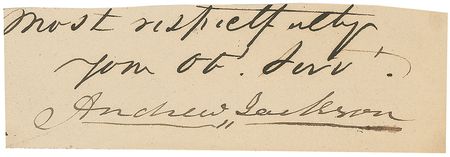 Most respectfully
your Obt. Servt.
Andrew Jackson